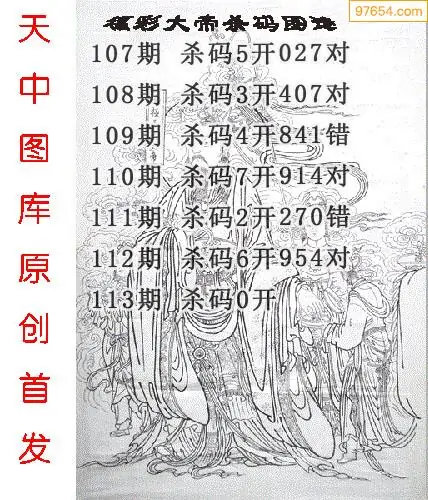 97654.com
福彩大帝杀码图迷
107期 杀码5开027对
108期 杀码3开407对
109期 杀码4开841错
110期 杀码7开914对
111期 杀码2开270错
112期 杀码6开954对
113期 杀码0开
天中图库原创首发